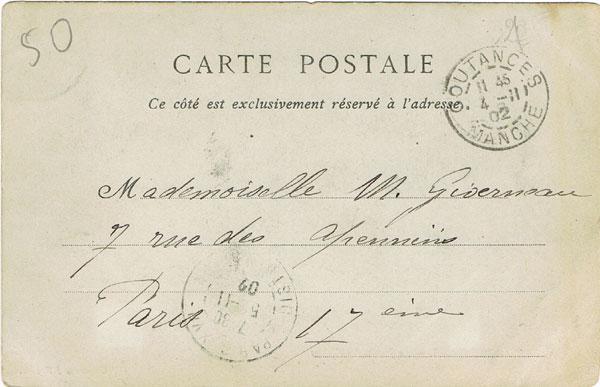 50
CARTE POSTALE
Ce côté est exclusivement réservé à l'adresse
COUTANCES
11 45
4 -11
02
MANCHE
Mademoiselle M. Giverneau
7 rue des Apennins
Paris 17 ème
PARIS
7 30
5 -11